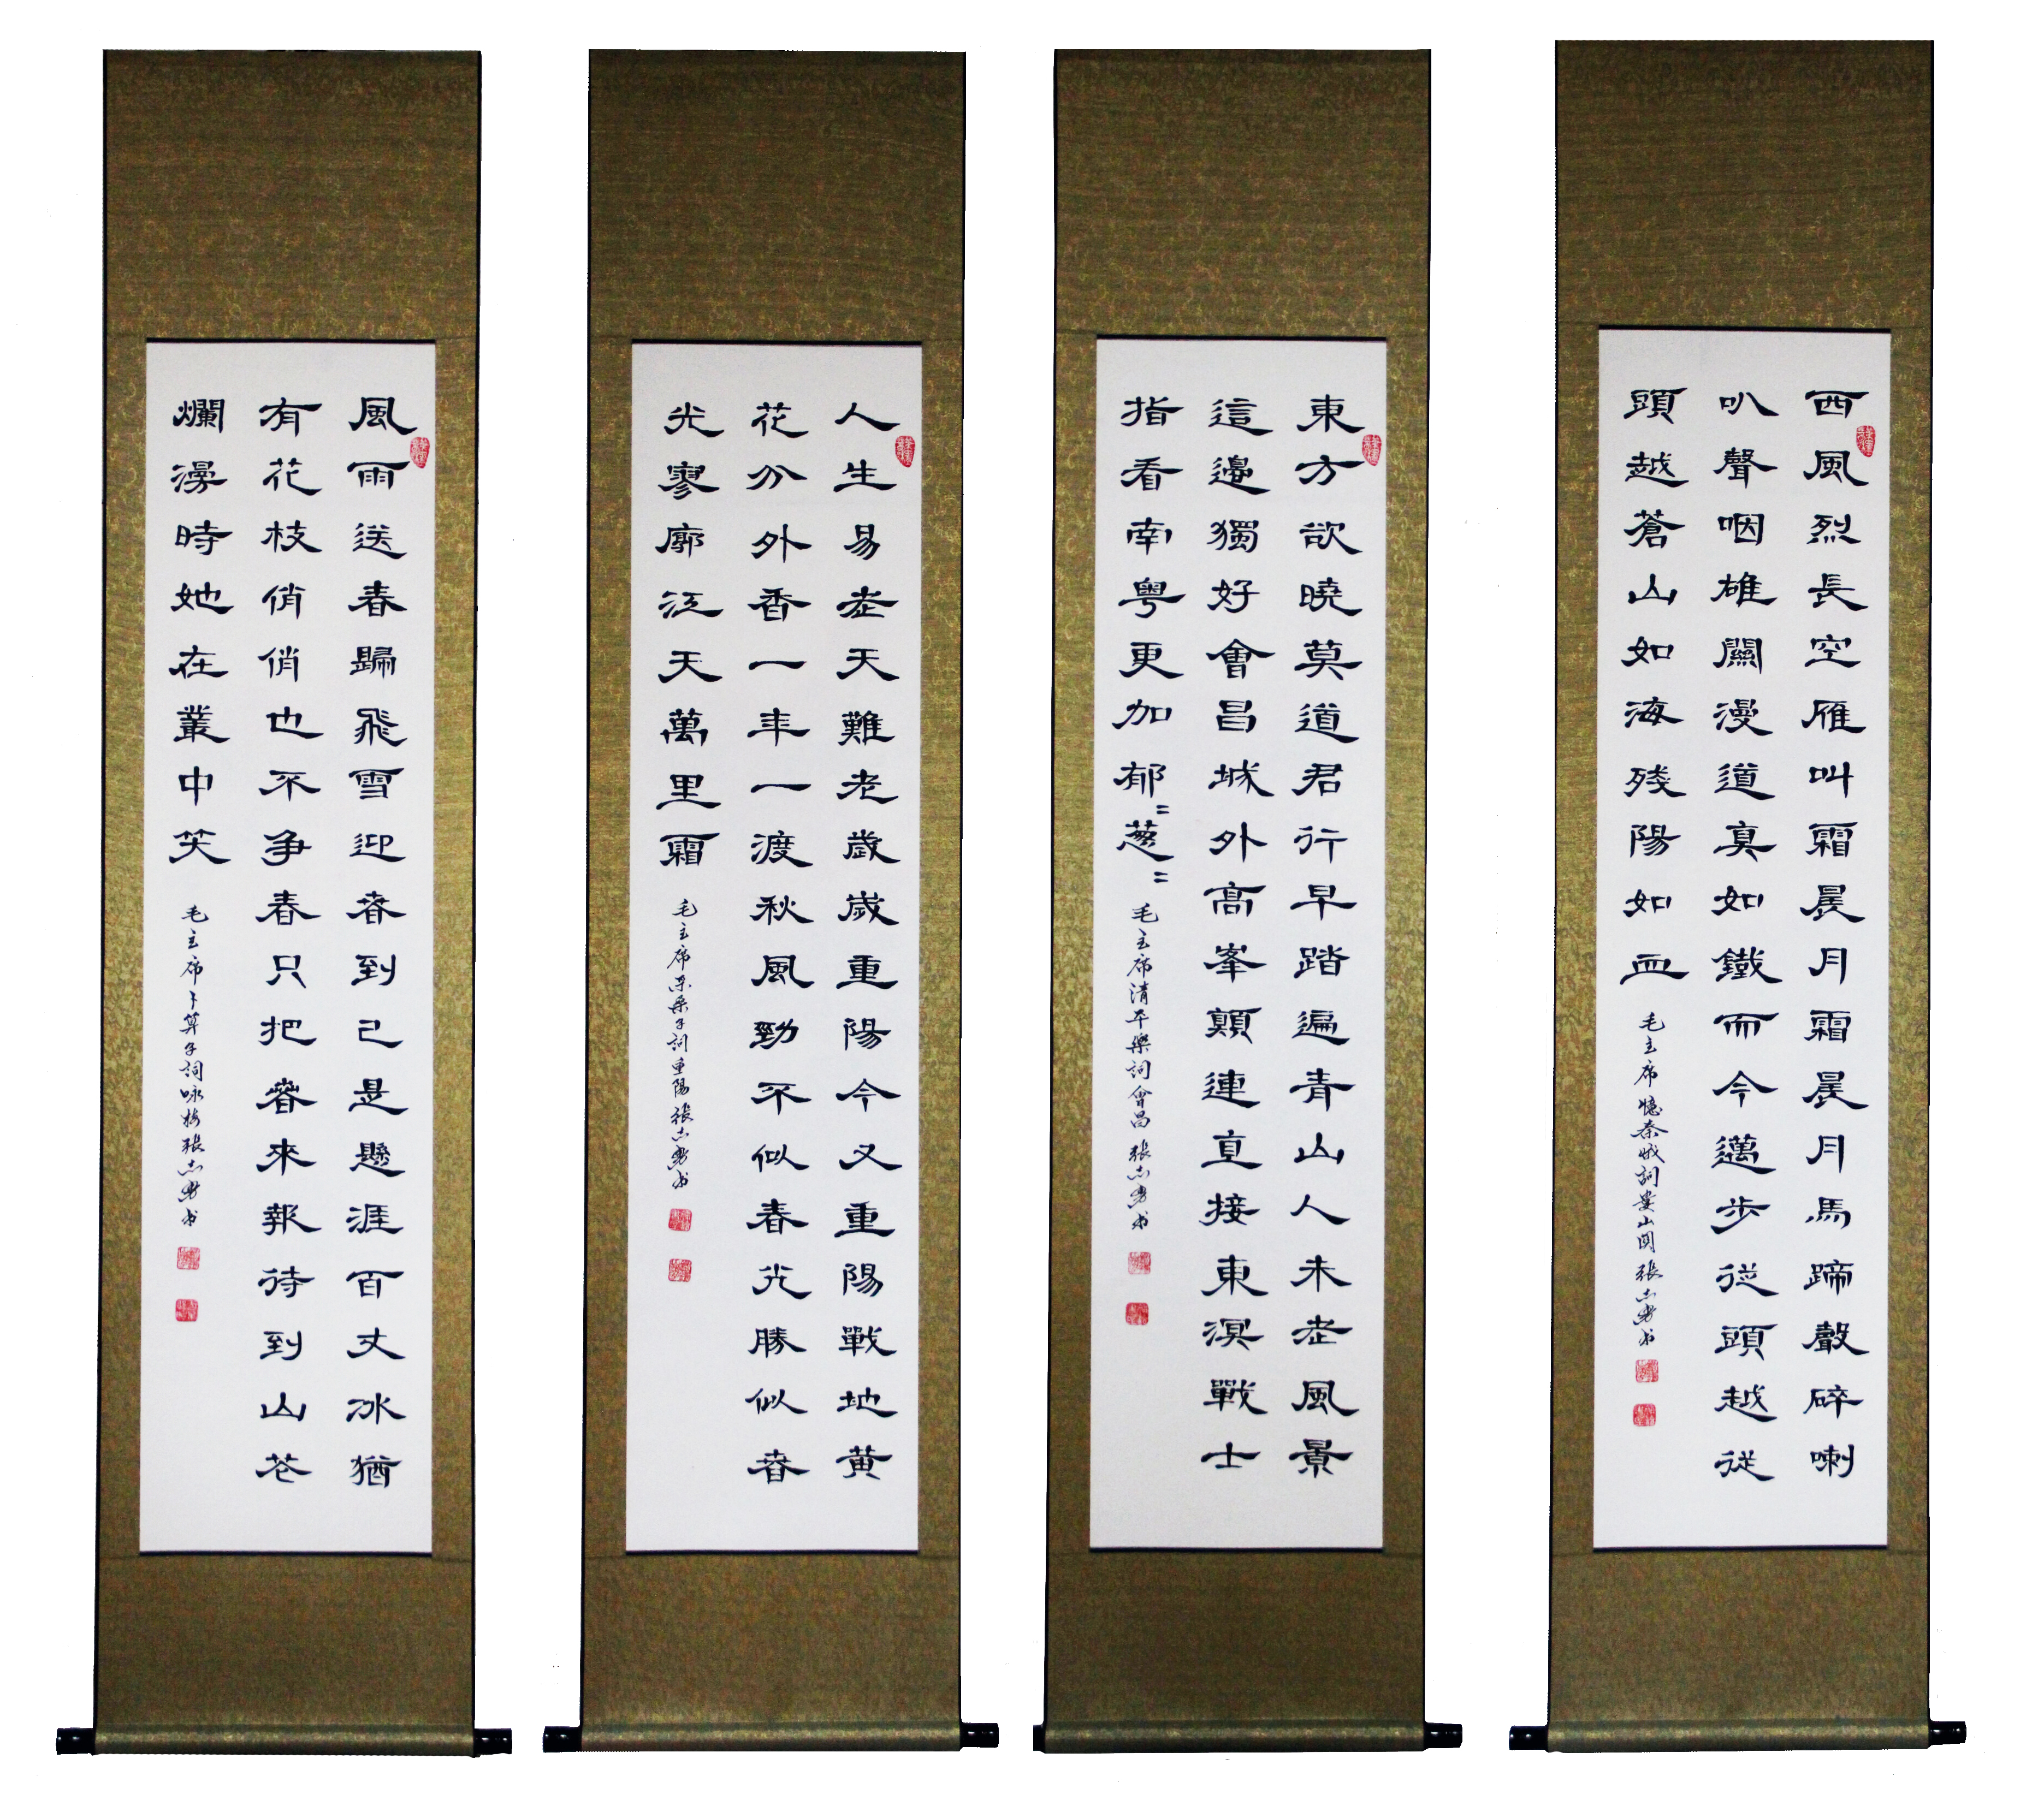 西風烈長空雁叫霜晨月霜晨月馬蹄聲碎喇
叭聲咽雄關漫道真如鐵而今邁步從頭越從
頭越蒼山如海残陽如血
毛主席憶秦娥詞婁山関 張志勇书
東方欲曉莫道君行早踏遍青山人未老風景
這邊獨好會昌城外高峯顛連直接東溟戰士
指看南粤更加郁〻蔥〻
毛主席清平樂詞會昌 張志勇书
人生易老天難老歲歲重陽今又重陽戰地黄
花分外香一年一渡秋風勁不似春光勝似春
光寥廓江天萬里霜
毛主席采桑子詞重陽張志勇书
風雨送春歸飛雪迎春到已是懸涯百丈冰猶
有花枝俏俏也不争春只把春來報待到山花
爛漫時她在叢中笑
毛主席卜算子詞咏梅張志勇书